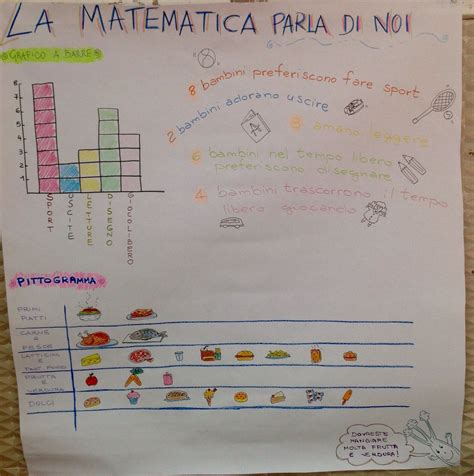 LA MATEMATICA PARLA DI NOI
GRAFICO A BARRE
8 bambini preferiscono fare sport
2 bambini adorano uscire
3 amano leggere
6 bambini nel tempo libero
preferiscono disegnare
4 bambini trascorrono il tempo
libero giocando
8
7
6
5
4
3
2
1
SPORT
USCITE
LETTURE
DISEGNO
GIOCO LIBERO
PITTOGRAMMA
PRIMI
PIATTI
CARNE
E
PESCE
LATTICINI
E
FAST FOOD
FRUTTA
E
VERDURA
DOLCI
DOVRESTE
MANGIARE
MOLTA FRUTTA
E VERDURA!